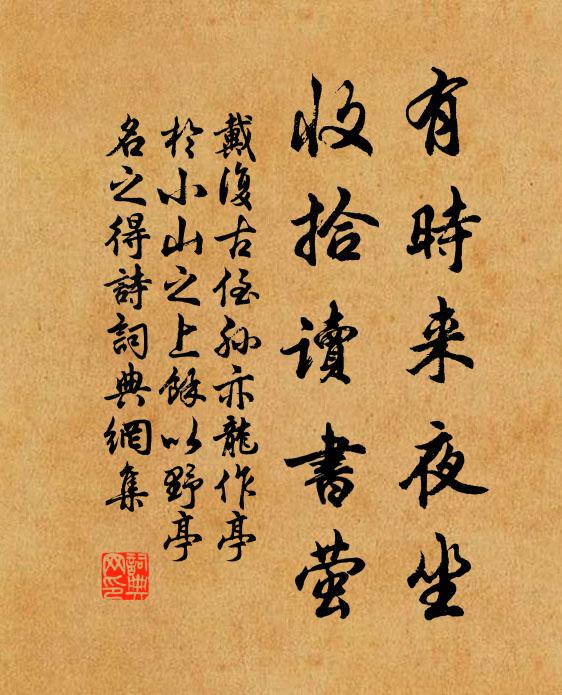 有時来夜坐
收拾讀書萤
戴復古侄孙亦龍作亭
於小山之上餘以野亭
名之得詩詞典網集
詞典网印